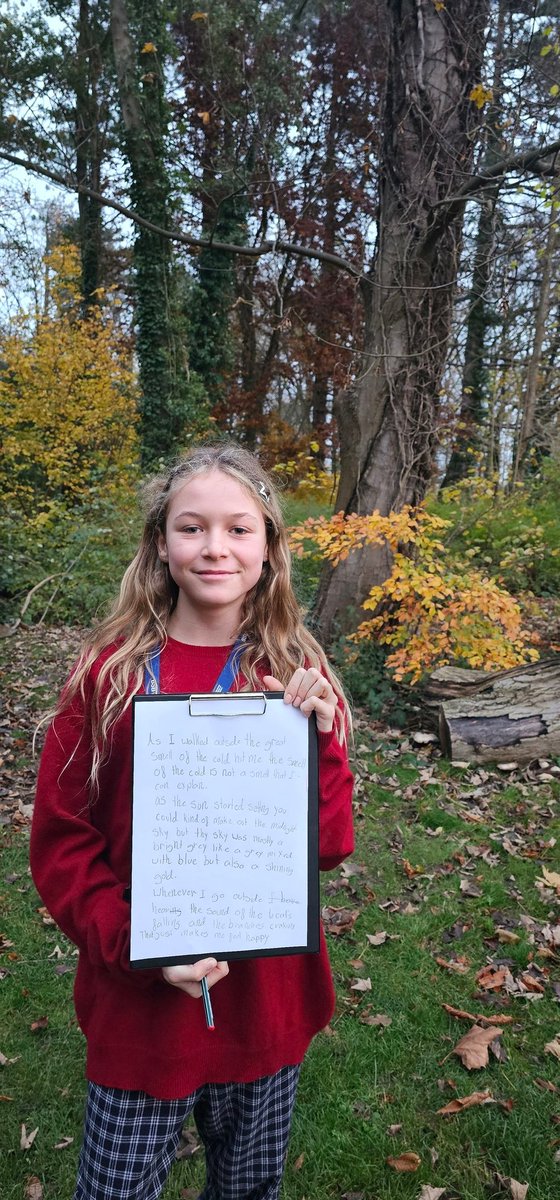 As I walked outside the great
smell of the cold hit me the smell
of the cold is not a smell that I
can explain.
As the sun started seting you
could kind of make out the midnight
sky but thy sky was mostly a
bright grey like a grey mixed
with blue but also a shining
gold.
Whenever I go outside I
hearing the sound of the leafs
falling and the branches craking
That just makes me feel happy